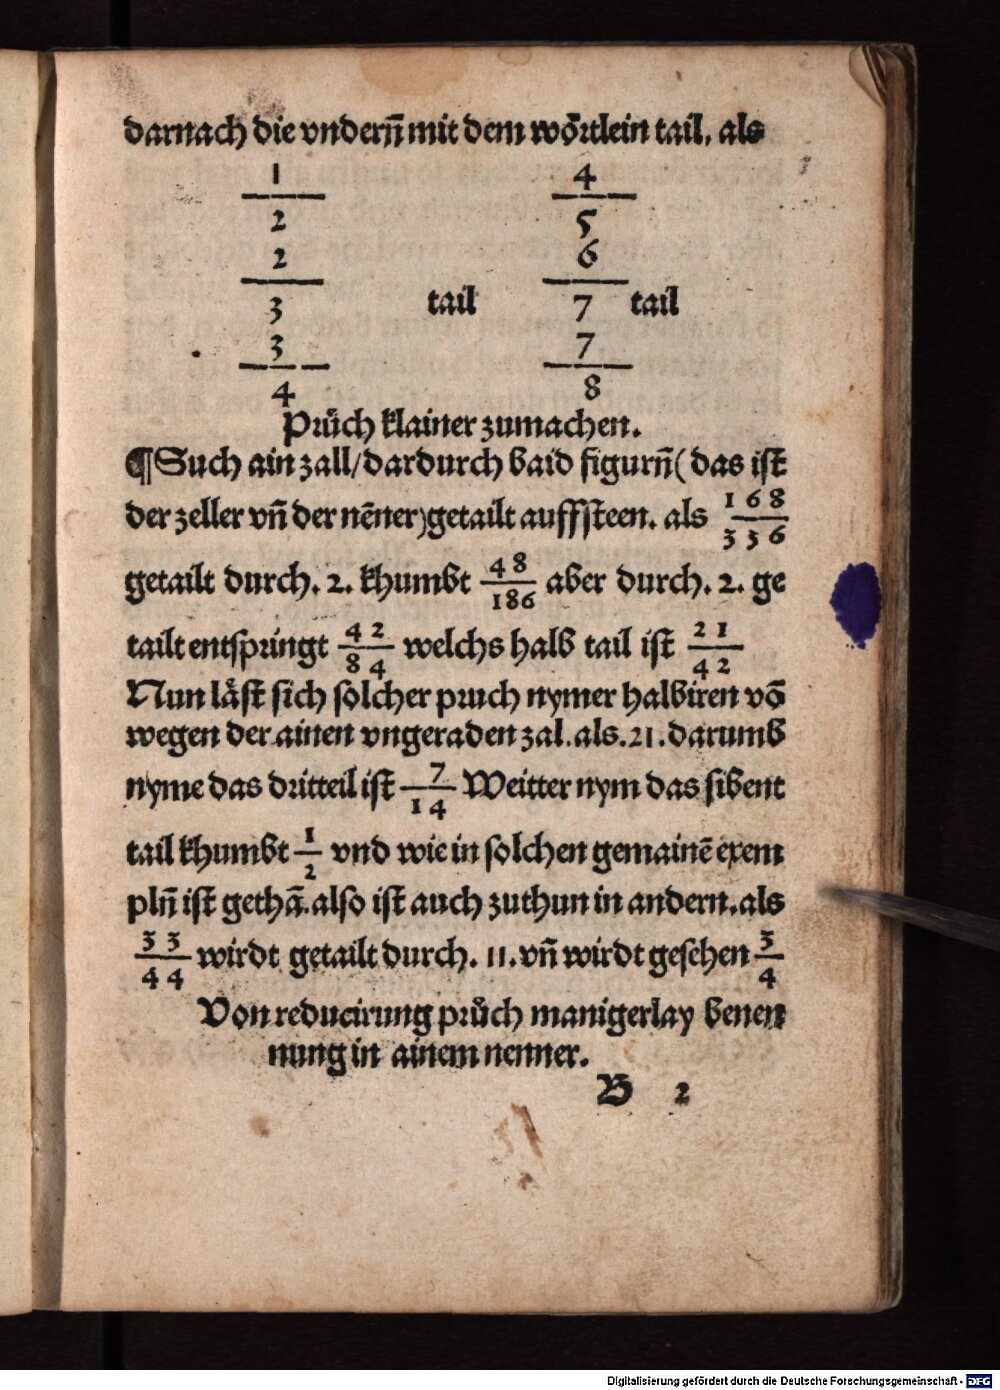 darnach die vndern̄ mit dem wörtlein tail. als
1 4
2 5
2 6
3 tail 7 tail
3 7
4 8
Průch klainer zumachen.
¶Such ain zall/dardurch baid figurn̄(das ist
der zeller vn̄ der nēner)getailt auffsteen. als 168/336
getailt durch. 2. khumbt 48/186 aber durch. 2. ge
tailt entspringt 42/84 welchs halb tail ist 21/42
Nun låst sich solcher pruch nymer halbiren vō
wegen der ainen vngeraden zal. als. 21. darumb
nyme das dritteil ist 7/14 Weitter nym das sibent
tail khumbt 1/2 vnd wie in solchen gemainē exem
pln̄ ist gethā. also ist auch zuthun in andern. als
33/44 wirdt getailt durch. 11. vn̄ wirdt gesehen 3/4
Von reducirung průch manigerlay benen
nung in ainem nenner.
B 2
Digitalisierung gefördert durch die Deutsche Forschungsgemeinschaft - DFG